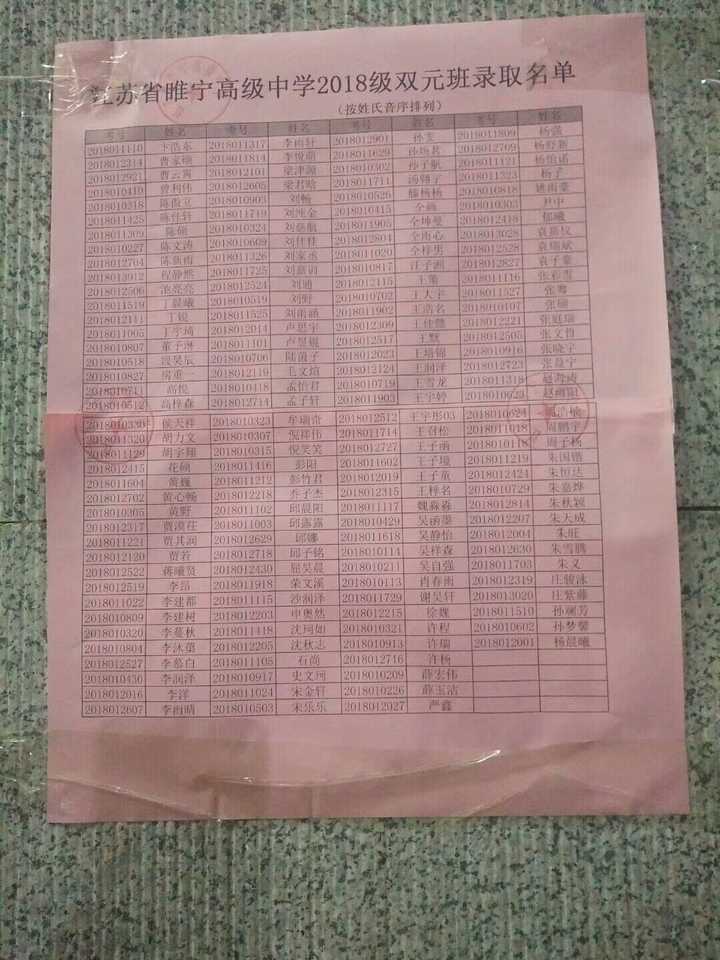 江苏省睢宁高级中学2018级双元班录取名单
（按姓氏音序排列）
考号 姓名 考号 姓名 考号 姓名 考号 姓名
2018011110 卞浩东 2018011317 李雨轩 2018012901 孙雯 2018011809 杨强
2018012314 曹家硕 2018011814 李悦萌 2018011629 2018012709 杨舒新
2018012921 曹云霄 2018012101 梁津源 2018010302 孙子航 2018011121 杨怡诺
2018010410 曾利伟 2018012605 梁君晗 2018011711 汤翱宇 2018011323 杨子
2018010218 陈俊立 2018010903 刘畅 2018010526 滕杨杨 2018010818 姚雨棠
2018011425 陈佳轩 2018011719 刘纯金 2018010415 仝画 2018010303 尹中
2018011309 陈硕 2018010324 刘嘉航 2018011905 仝坤曼 2018012418 郁曦
2018010227 陈文涛 2018010609 刘佳佳 2018012804 仝雨心 2018013028 袁嘉仪
2018012704 陈奕雨 2018011326 刘家丞 2018011020 仝梓男 2018012528 袁瑞斌
2018013012 程静熙 2018011725 刘嘉训 2018010817 汪子涵 2018012827 袁子棠
2018012506 池亮亮 2018012524 刘通 2018012115 王策 2018011116 张彩雪
2018011519 丁晨曦 2018010519 刘野 2018010702 王大千 2018011527 张骞
2018012111 丁锐 2018011525 刘雨涵 2018011902 王浩名 2018010107 张硕
2018011005 丁宇琦 2018012014 卢思宇 2018012309 王佳懿 2018012221 张庭瑞
2018010807 董子琳 2018011101 卢昱锟 2018012517 王默 2018012505 张文哲
2018010518 段昊辰 2018010706 陆茵子 2018012023 王培锦 2018010916 张晓宇
2018010827 房重一 2018012119 毛文煊 2018012124 王润泽 2018012723 张益宁
2018010711 高悦 2018010418 孟怡君 2018010719 王雪龙 2018011318 赵海涛
2018010512 高梓森 2018012714 孟子轩 2018011903 王宇婷 2018010629 赵雨阳
2018010330 侯天祥 2018010323 牟瑞奇 2018012512 王宇彤03 2018010624
2018011320 胡力文 2018010307 倪祥伟 2018011714 王召松 2018011018 周鹏宇
2018011129 胡宇翔 2018010315 倪笑笑 2018012727 王子涵 2018010118 周子杨
2018012415 花硕 2018011416 彭阳 2018011602 王子境 2018011219 朱国锴
2018011604 黄巍 2018011212 彭竹君 2018012019 王子童 2018012424 朱恒达
2018012702 黄心畅 2018012218 乔子杰 2018012315 王梓名 2018010729 朱嘉烨
2018010305 黄野 2018011102 邱晨阳 2018011117 魏淼淼 2018012814 朱秋颖
2018012317 贾漠茌 2018011003 邱露露 2018010429 吴函蓥 2018012207 朱天成
2018011221 贾其润 2018012629 邱娜 2018011618 吴静怡 2018012004 朱旺
2018012120 贾若 2018012718 邱子铭 2018010114 吴祥森 2018012630 朱雪鹏
2018012522 蒋曦贠 2018012430 屈昊晨 2018010211 吴自强 2018011703 朱义
2018012519 李昂 2018011918 荣文溪 2018010113 肖春雨 2018012319 庄骏泳
2018011022 李建都 2018011115 沙润泽 2018011729 谢昊轩 2018013020 庄紫藤
2018010809 李建树 2018012203 申奥然 2018012215 徐巍 2018011510 孙斓芳
2018010320 李蔓秋 2018011418 沈珂如 2018010321 许程 2018010602 孙梦馨
2018010804 李沐菓 2018012205 沈秋志 2018010913 许瑞 2018012001 杨晨曦
2018012527 李慕白 2018011105 石尚 2018012716 许杨
2018010430 李润泽 2018010917 史文珂 2018010209 薛宏伟
2018012016 李洋 2018011024 宋金轩 2018010226 薛玉洁
2018012607 李雨晴 2018010503 宋乐乐 2018012927 严鑫